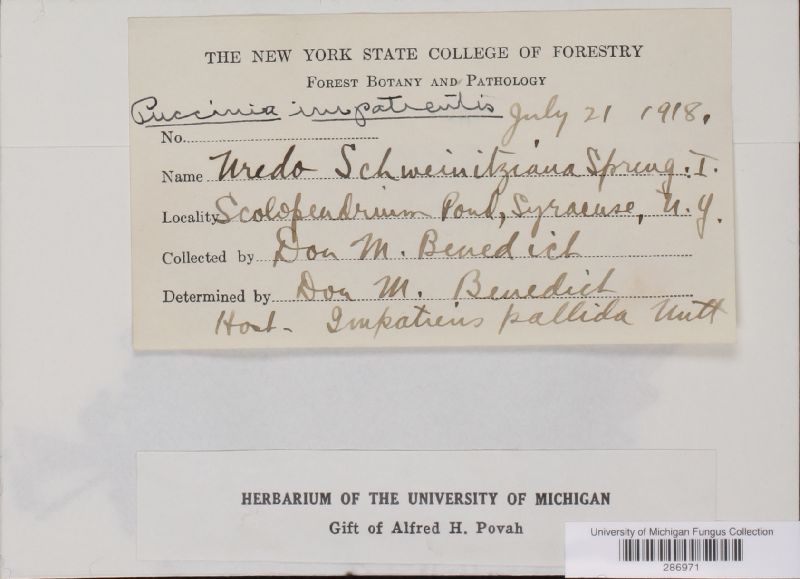 THE NEW YORK STATE COLLEGE OF FORESTRY
FOREST BOTANY AND PATHOLOGY
Puccinia impatientis July 21 1918.
No.
Name Uredo Schweinitziana Spreng. I.
Locality Scolopendrium Pond, Syracuse, N. Y.
Collected by Don M. Benedict
Determined by Don M. Benedict
Host - Impatiens pallida Nutt
HERBARIUM OF THE UNIVERSITY OF MICHIGAN
Gift of Alfred H. Povah
University of Michigan Fungus Collection
286971